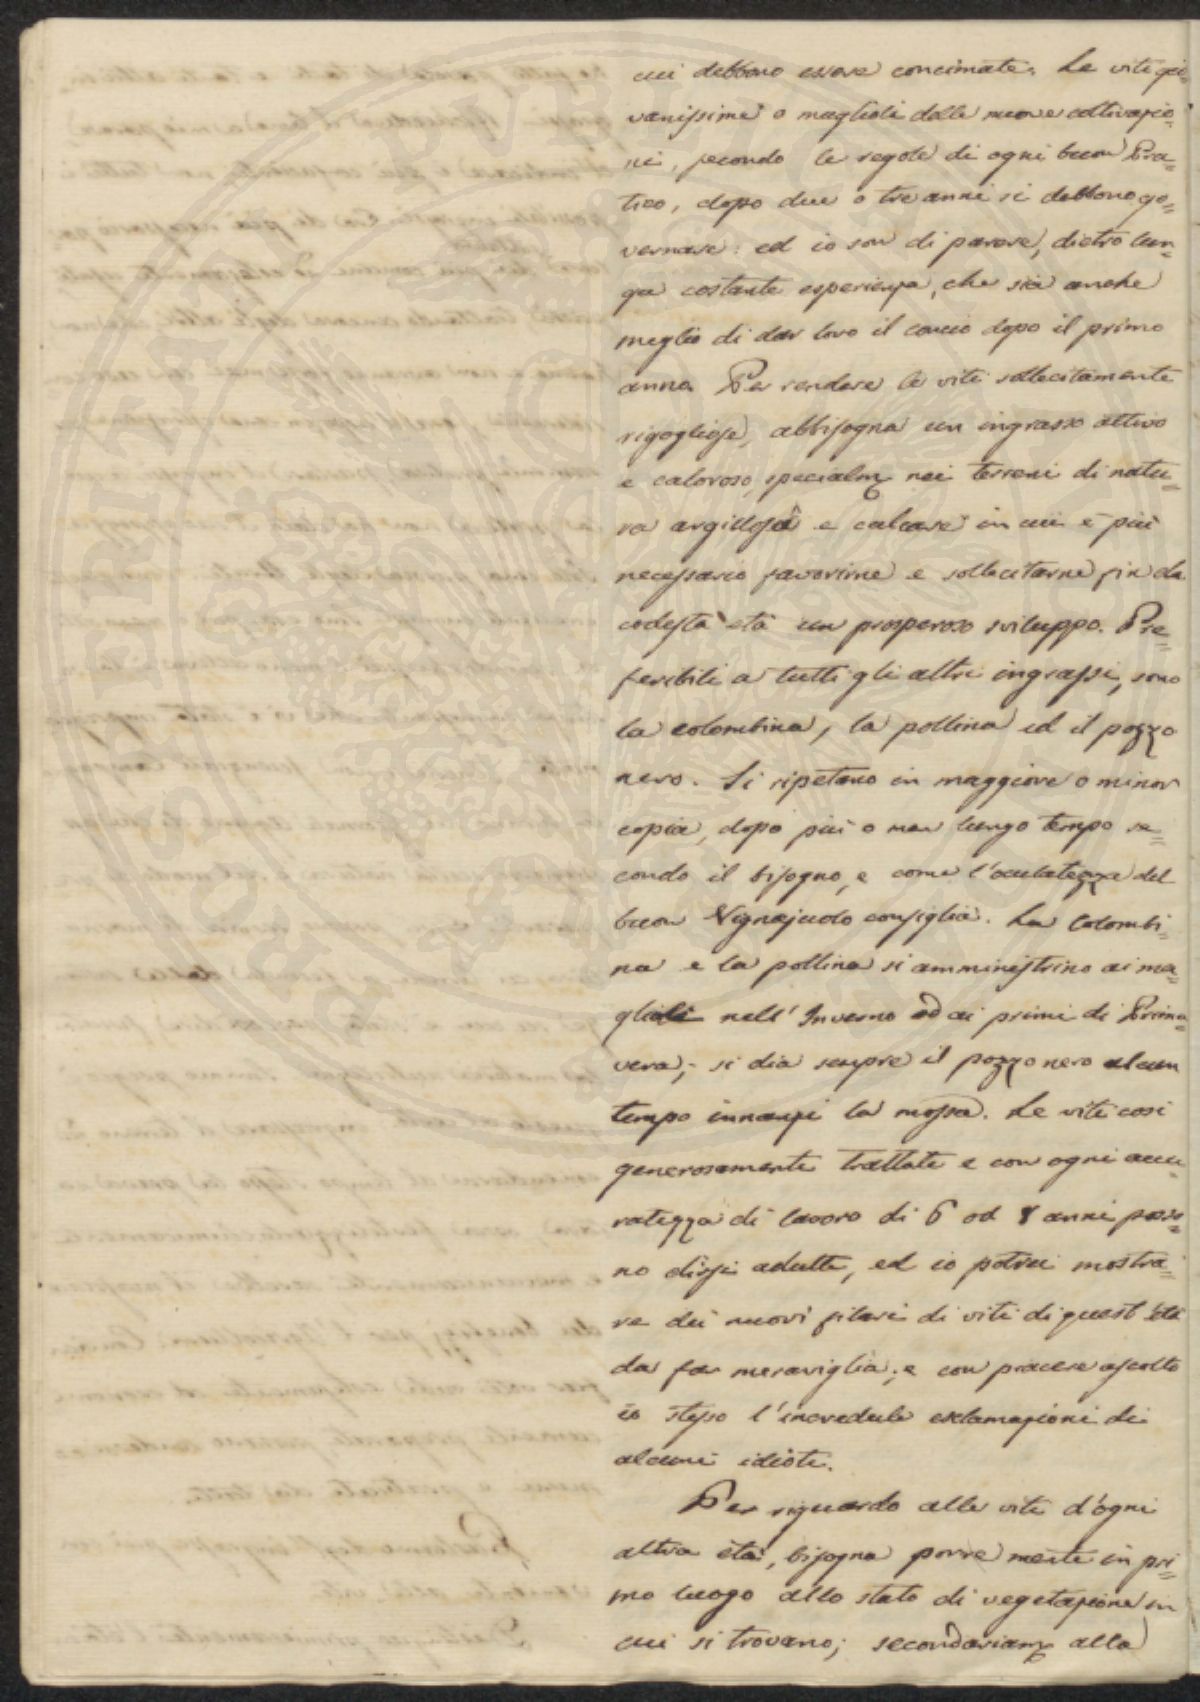 cui debbono essere concimate. Le viti gio=
vanissime o maglioli delle nuove coltivazio=
ni, secondo le regole di ogni buon Pra=
tico, dopo due o tre anni si debbono go=
vernare: ed io son di parere, dietro lun=
ga costante esperienza, che sia anche
meglio di dar loro il concio dopo il primo
anno. Per rendere le viti sollecitamente
rigogliose, abbisogna un ingrasso attivo
e caloroso, specialm. nei terreni di natu=
ra argillosa e calcare in cui è più
necessario favorirne e sollecitarne fin da
codesta età un prosperoso sviluppo. Pre=
feribili a tutti gli altri ingrassi, sono
la colombina, la pollina ed il pozzo
nero. Si ripetano in maggiore o minor
copia, dopo più o men lungo tempo se=
condo il bisogno, e come l'oculatezza del
buon Vignajuolo consiglia. La Colombi=
na e la pollina si amministrino ai ma=
glioli nell'Inverno od ai primi di Prima=
vera; si dia sempre il pozzo nero alcun
tempo innanzi la mossa. Le viti così
generosamente trattate e con ogni accu=
ratezza di lavoro di 6 od 8 anni posso=
no dirsi adulte, ed io potrei mostra=
re dei nuovi filari di viti di quest'età
da far meraviglia; e con piacere ascolto
io stesso l'incredule esclamazioni di
alcuni idioti.
Per riguardo alle viti d'ogni
altra età, bisogna porre mente in pri=
mo luogo allo stato di vegetazione in
cui si trovano; secondariam. alla